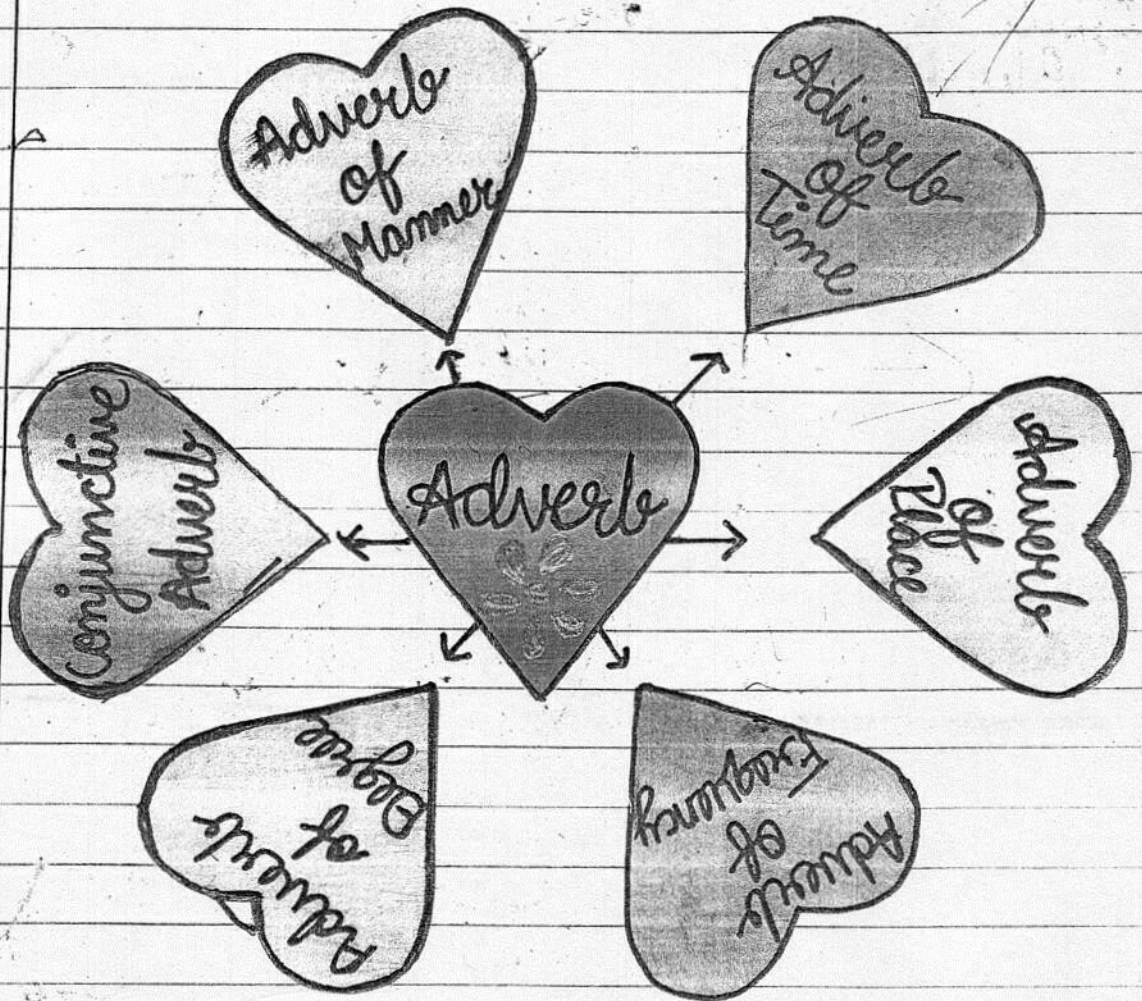 Adverb
of
Manner
Adverb
of
Time
Conjunctive
Adverb
Adverb
Adverb
of
Place
Adverb
of
Degree
Adverb
of
Frequency